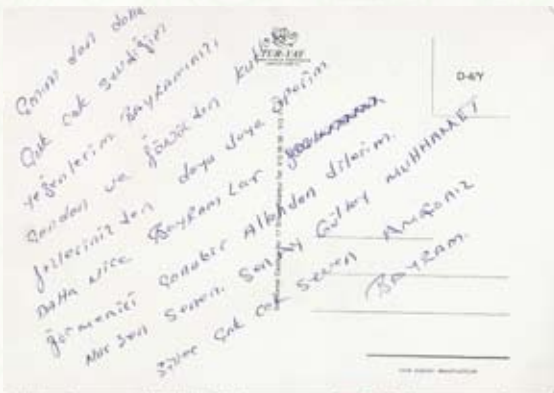 Canım dan daha
Çok cok sevdiğim
yeğenlerim BAYRAMINIZI
Candan ve gönülden kutlar
gözlerinizden doya doya öperim
DAHA NİCE BAYRAMLAR
görmenizi Canabır Allahdan dilerim.
Nur Sen Senem. Senay Gülbey MUHHAMET
Sizler Çok cok seven AMCANIZ
BAYRAM.
TUR-YAY
D-6Y